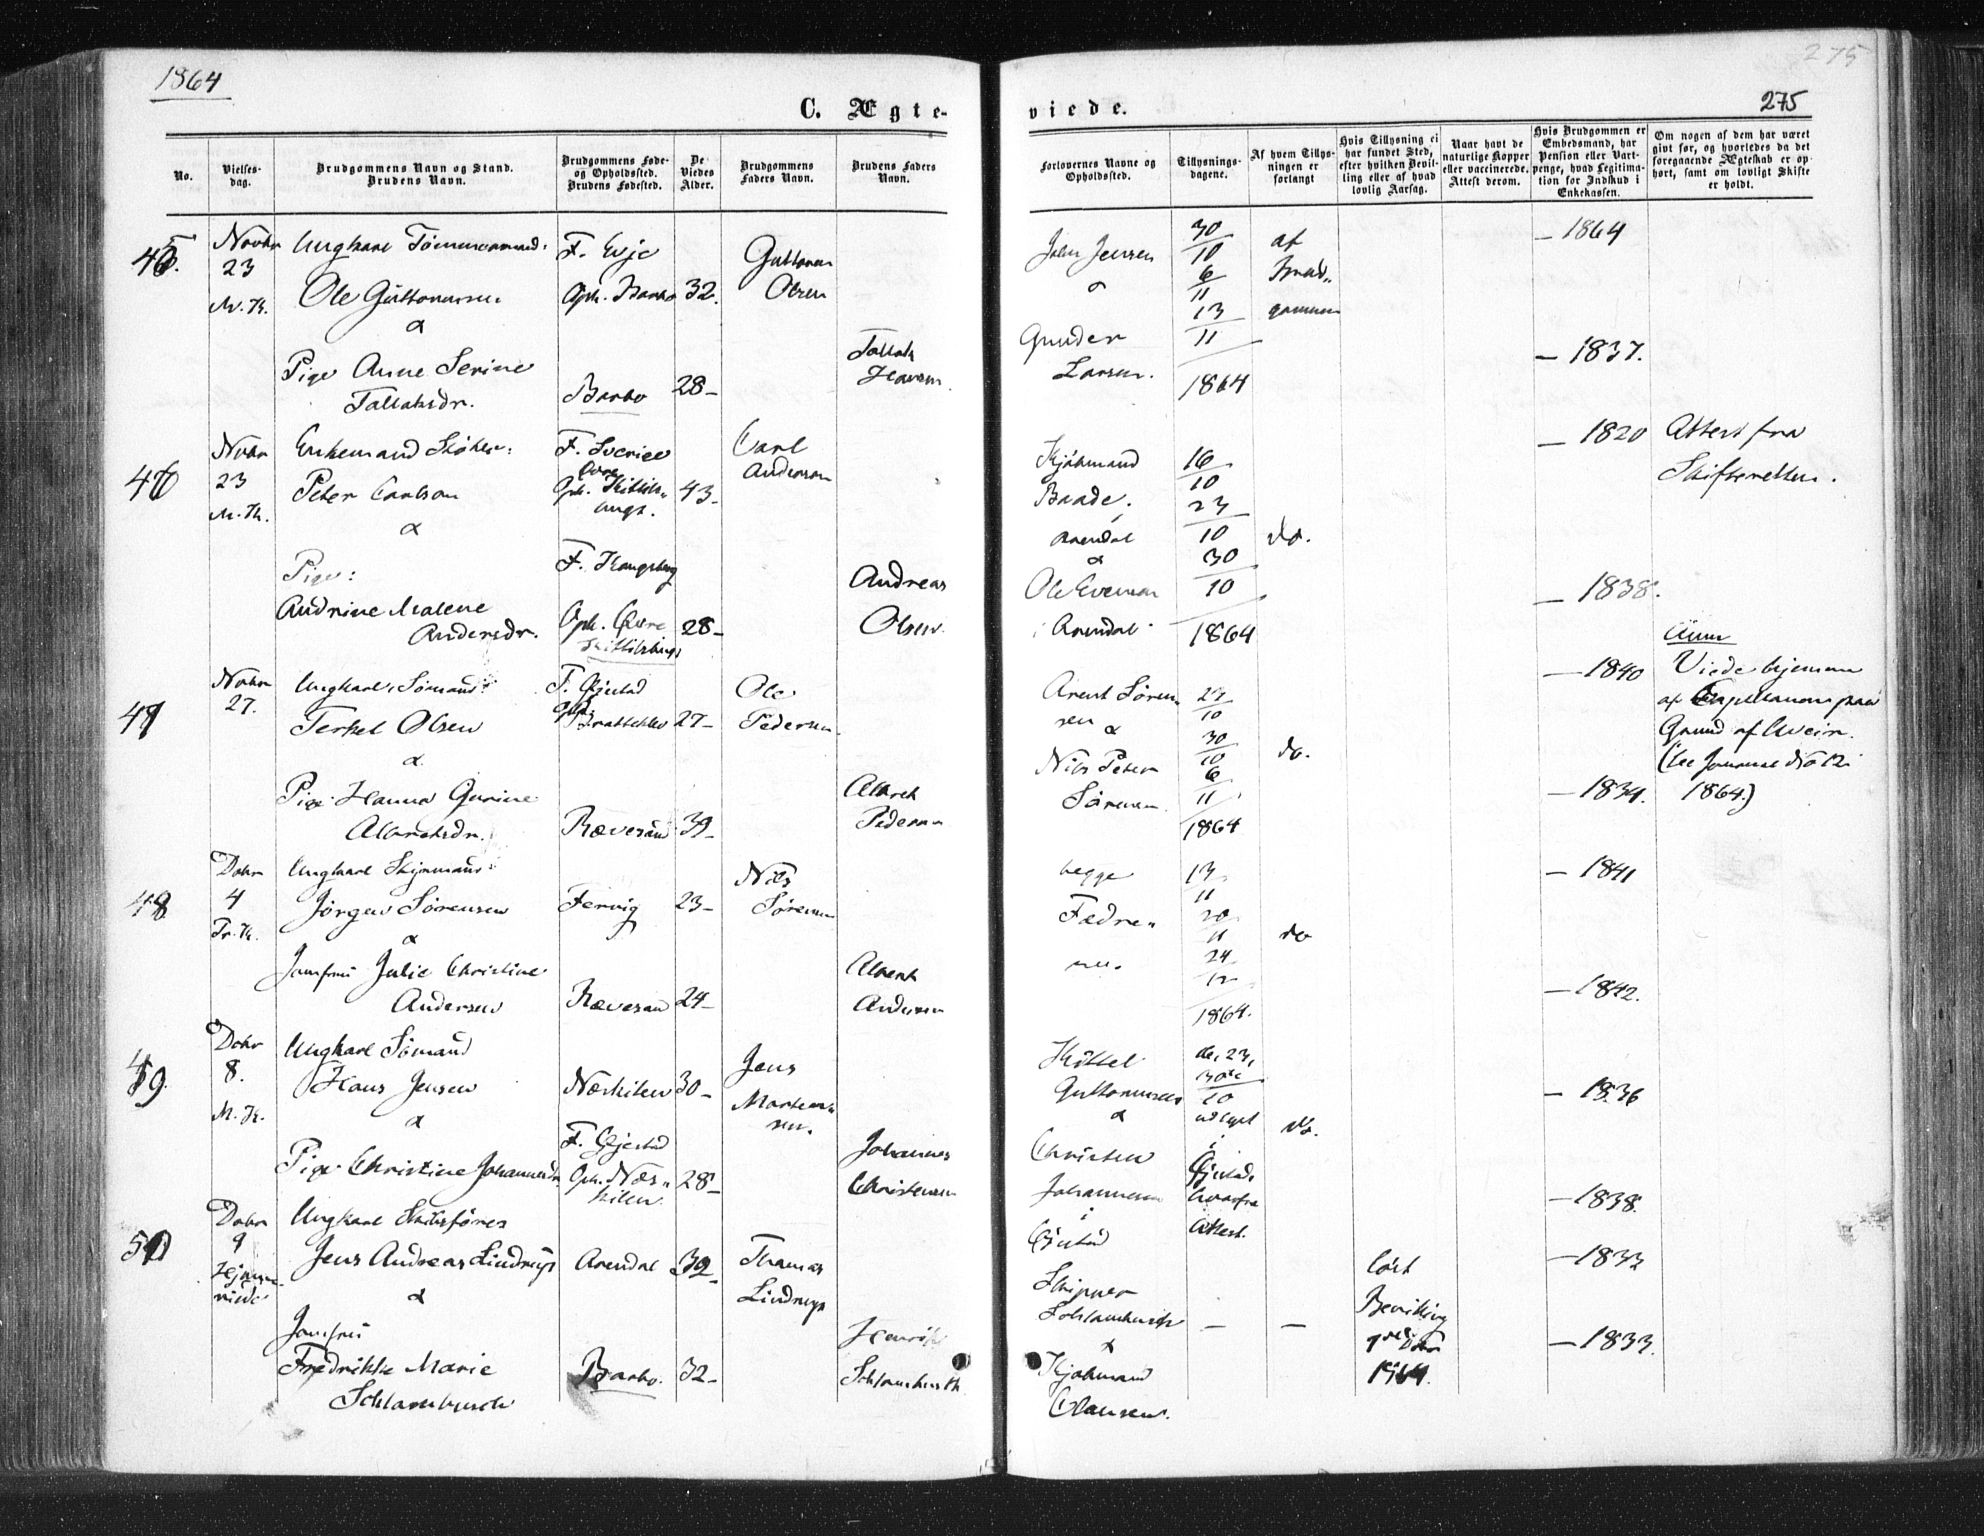 1864
275
275
C. Ægte-
viede.
No.
Vielses-
dag.
Brudgommens Navn og Stand.
Brudens Navn.
Brudgommens Føde-
og Opholdssted.
Brudens Fødested.
De
Viedes
Alder.
Brudgommens
Faders Navn.
Brudens Faders
Navn.
Forlovernes Navne og
Opholdssted.
Tillysnings-
dagene.
Af hvem Tillys-
ningen er
forlangt
Hvis Tillysning ei
har fundet Sted,
efter hvilken Bevil-
ling eller af hvad
lovlig Aarsag.
Naar havt de
naturlige Kopper
eller vaccinerede.
Attest derom.
Hvis Brudgommen er
Embedsmand, har
Pension eller Vart-
penge, hvad Legitima-
tion for Indskud i
Enkekassen.
Om nogen af dem har været
gift før, og hvorledes da det
foregaaende Ægteskab er op-
hørt, samt om lovligt Skifte
er holdt.
45.
Novbr
23
M. K.
Ungkarl Tømmermand:
Ole Guttormsen
&
Pige Anne Serine
Tallaksdr.
F. Evje
Oph. Barbo
Barbo
32.
28-
Guttorm
Olsen
Tallak
Hansen
John Jensen
&
Gunder
Larsen.
30
10
6
11
13
11
1864
af
Brud-
gommen
- 1864
- 1837.
46
Novbr
23
M. K.
Enkemand
Peter Carlson
&
Pige:
Andrine Malene
Andersdr.
F. Sverige
Øvre
Oph.
F. Kongsberg
Oph. Øvre
43-
28-
Carl
Anderson
Andreas
Olsen
Kjøbmand
Baade.
Arendal
&
Ole Evensen
i Arendal
16
10
23
10
30
10
1864
do.
- 1820
- 1838.
Attest fra
Skifteretten.
47
Novbr
27.
Ungkarl, Sømand:
Terkel Olsen
&
Pige Hanna Gurine
Albretsdr.
F. Gjestad
Oph.
Bratteklev
Rævesand
27-
39-
Ole
Pedersen.
Albret
Pedersen
Arent Søren-
sen &
Nils Peter
Sørensen
23
10
30
10
6
11
1864
do.
- 1840
- 1834.
Anm
Viede hjemme
af Capellanen paa
Grund af Uveir.
(See Journal
1864.)
48
Debr
4
Tr. K.
Ungkarl Skipmand:
Jørgen Sørensen
&
Jomfru Julie Christine
Andersen
Fervig
Rævesand
23-
24-
Nils
Sørensen
Albert
Andersen
begge
Fædre-
ne.
13
11
20
11
24
12
1864.
do
- 1841
- 1842.
49
Debr
8.
M. K.
Ungkarl Sømand
Hans Jensen
&
Pige Christine Johannesdr.
Næskilen
F. Gjestad
Oph. Næs-
kilen
30-
28-
Jens
Morten-
sen.
Johannes
Christensen
Kittel
Guttormsen
&
Christen
Johannesen
i
Gjestad
de, 23,
30te
10
udlyst
i
Gjestad,
hvorfra
Attest.
do.
- 1836
- 1838.
50
Debr
9
Hjemme-
viede
Ungkarl Skibsfører
Jens Andreas Lindrup
&
Jomfru
Fredrikke Marie
Schlambusch
Arendal
Barbo.
32-
32-
Thomas
Lindrup
Henrik
Schlambusch
Skipper
Schlambusch
&
Kjøbmand
Clausen.
-
-
løst
Bevilling
7de Debr
1864.
- 1833
- 1833.